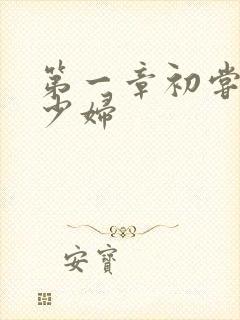 第一章初嘗
少婦
安寶